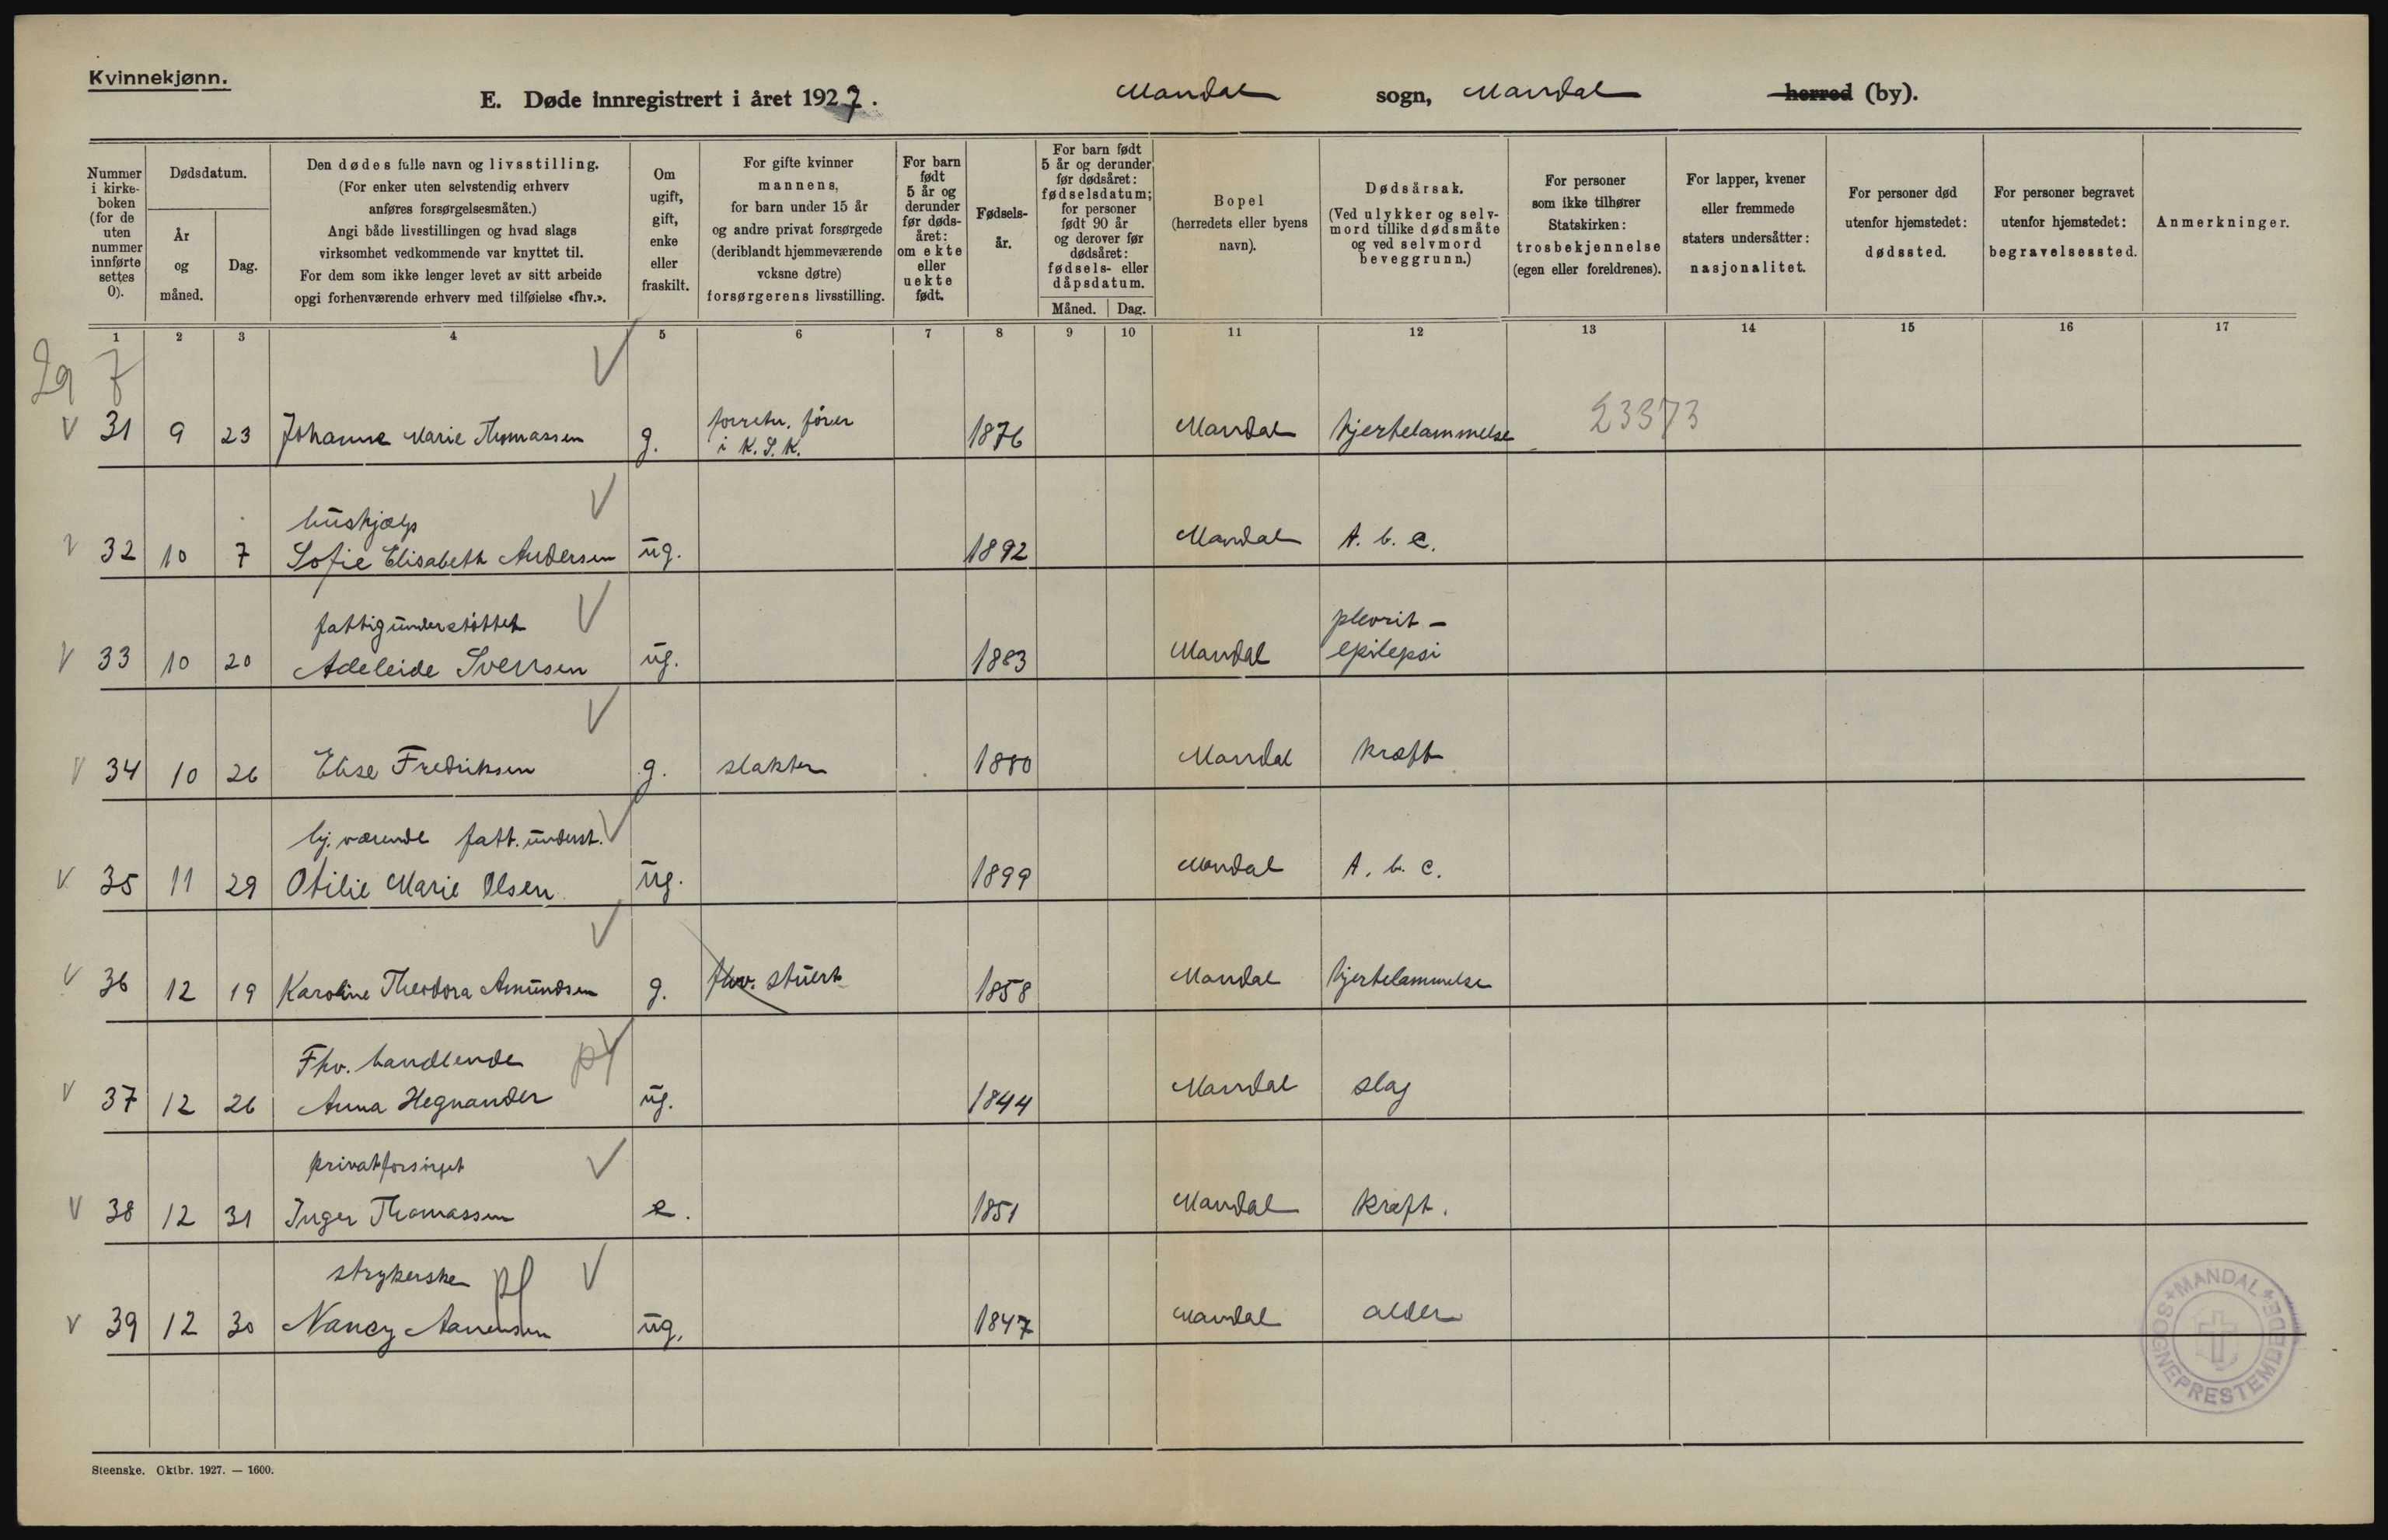 Kvinnekjønn.
E. Døde innregistrert i året 1927.
Mandal sogn, Mandal herred (by).
Nummer i kirke-boken (for de uten nummer innførte settes 0).
Dødsdatum.
År og måned.
Dag.
Den dødes fulle navn og livsstilling.
(For enker uten selvstendig erhverv
anføres forsørgelsesmåten.)
Angi både livsstillingen og hvad slags
virksomhet vedkommende var knyttet til.
For dem som ikke lenger levet av sitt arbeide
opgi forhenværende erhverv med tilføielse «fhv.».
Om ugift, gift, enke eller fraskilt.
For gifte kvinner
mannens,
for barn under 15 år
og andre privat forsørgede
(deriblandt hjemmeværende
voksne døtre)
forsørgerens livsstilling.
For barn født 5 år og derunder før døds-året: om ekte eller uekte født.
Fødsels-år.
For barn født
5 år og derunder
før dødsåret:
fødselsdatum;
for personer
født 90 år
og derover før
dødsåret:
fødsels- eller
dåpsdatum.
Måned. Dag.
Bopel
(herredets eller byens
navn).
Dødsårsak.
(Ved ulykker og selv-
mord tillike dødsmåte
og ved selvmord
beveggrunn.)
For personer
som ikke tilhører
Statskirken:
trosbekjennelse
(egen eller foreldrenes).
For lapper, kvener
eller fremmede
staters undersåtter:
nasjonalitet.
For personer død
utenfor hjemstedet:
dødssted.
For personer begravet
utenfor hjemstedet:
begravelsessted.
Anmerkninger.
1 2 3 4 5 6 7 8 9 10 11 12 13 14 15 16 17
29 7
V 31 9 23 Johanne Marie Thomassen g. forretn. fører i K.S.K. 1876 Mandal hjertelammelse 23373
hushjælp
V 32 10 7 Sofie Elisabeth Andersen ug. 1892 Mandal A. b. c.
fattigunderstøttet
V 33 10 20 Adeleide Svensen ug. 1883 Mandal plevrit - epilepsi
V 34 10 26 Elise Fredriksen g. slakter 1880 Mandal kræft
hj. værende fatt. underst.
V 35 11 29 Otilie Marie Olsen ug. 1899 Mandal A. b. c.
V 36 12 19 Karoline Theodora Amundsen g. fhv. stuert 1858 Mandal hjertelammelse
Fhv. handlende
V 37 12 26 Anna Hegnander ug. 1844 Mandal slag
privatforsørget
V 38 12 31 Inger Thomassen e. 1851 Mandal kræft.
strykerske pf
V 39 12 30 Nancy Aanensen ug. 1847 Mandal alder
MANDAL SOGNEPRESTEMBEDE
Steenske. Oktbr. 1927. — 1600.